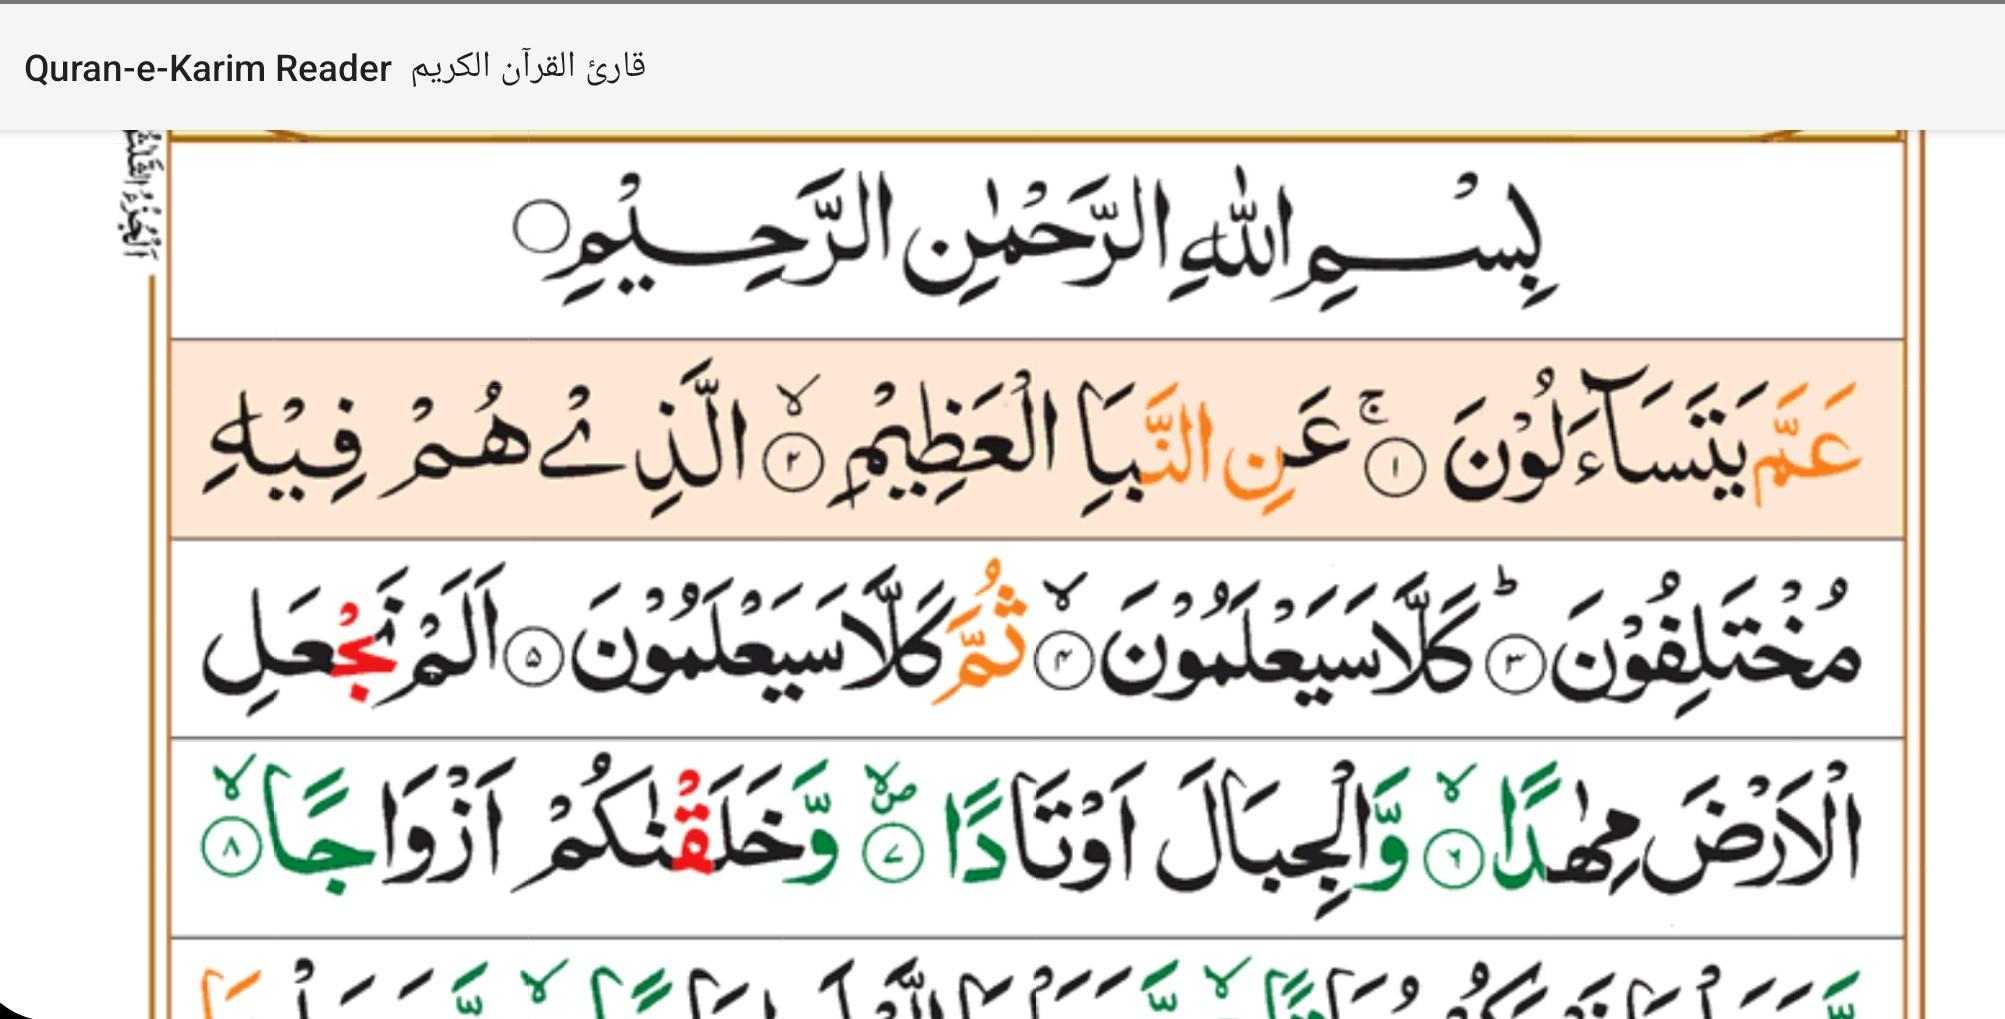 Quran-e-Karim Reader قارئ القرآن الكريم
بِسْمِ اللّٰهِ الرَّحْمٰنِ الرَّحِيْمِ
عَمَّ يَتَسَآءَلُوْنَ ۚ‏﴿۱﴾ عَنِ النَّبَاِ الْعَظِيْمِ ۙ‏﴿۲﴾ الَّذِىْ هُمْ فِيْهِ
مُخْتَلِفُوْنَ ؕ‏﴿۳﴾ كَلَّا سَيَعْلَمُوْنَ ۙ‏﴿۴﴾ ثُمَّ كَلَّا سَيَعْلَمُوْنَ ﴿۵﴾ اَلَمْ نَجْعَلِ
الْاَرْضَ مِهٰدًا ۙ‏﴿۶﴾ وَّالْجِبَالَ اَوْتَادًا ۙ‏ۖ﴿۷﴾ وَّخَلَقْنٰكُمْ اَزْوَاجًا ۙ‏﴿۸﴾